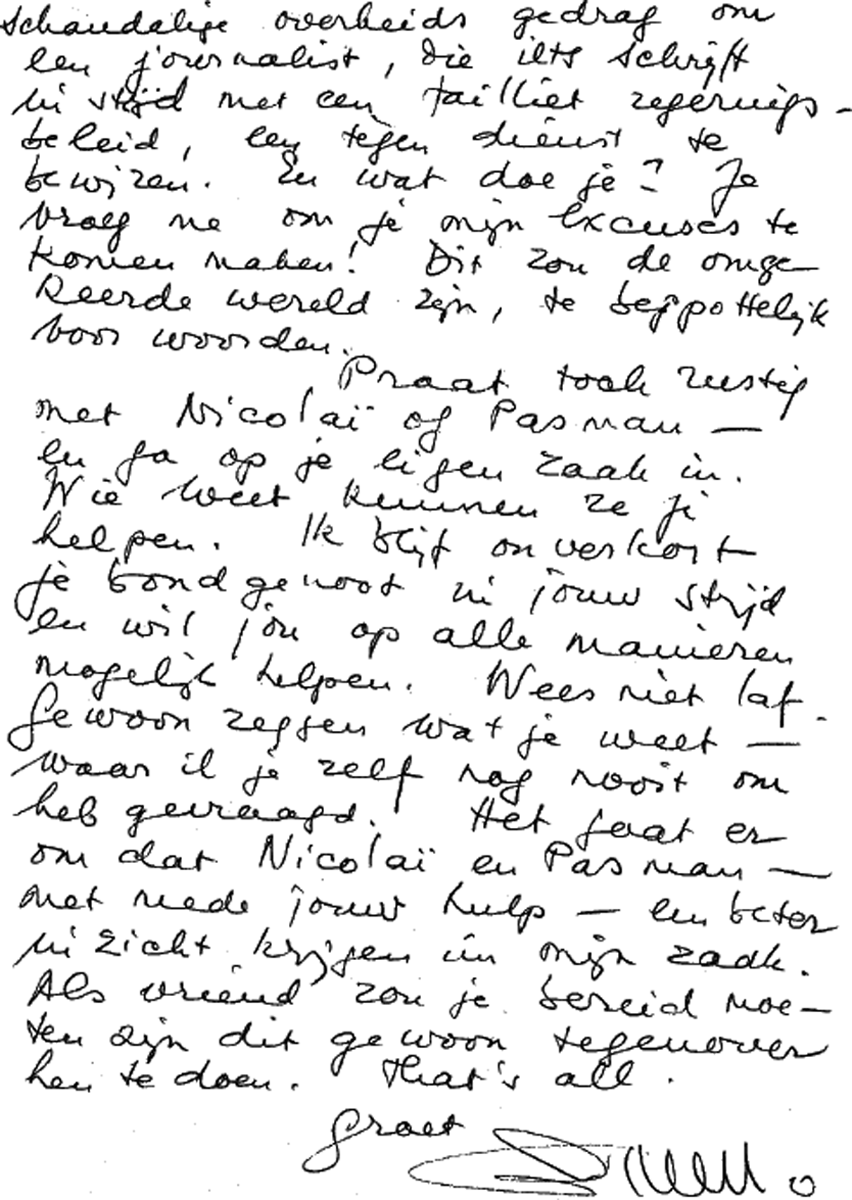 schandalige overheids gedrag om
een journalist, die iets schrijft
in strijd met een failliet regerings-
beleid, een tegen dienst te
bewijzen. En wat doe je? Je
vroeg me om je mijn excuses te
komen maken! Dit zou de omge-
keerde wereld zijn, te bespottelijk
voor woorden.
Praat toch rustig
met Nicolaï of Pasman —
en ga op je eigen zaak in.
Wie weet kunnen ze je
helpen. Ik blijf onverkort
je bondgenoot in jouw strijd
en wil jou op alle manieren
mogelijk helpen. Wees niet laf.
Gewoon zeggen wat je weet —
waar ik je zelf nog nooit om
heb gevraagd. Het gaat er
om dat Nicolaï en Pasman —
met mede jouw hulp — een beter
inzicht krijgen in mijn zaak.
Als vriend zou je bereid moe-
ten zijn dit gewoon tegenover
hen te doen. That's all.
Groet